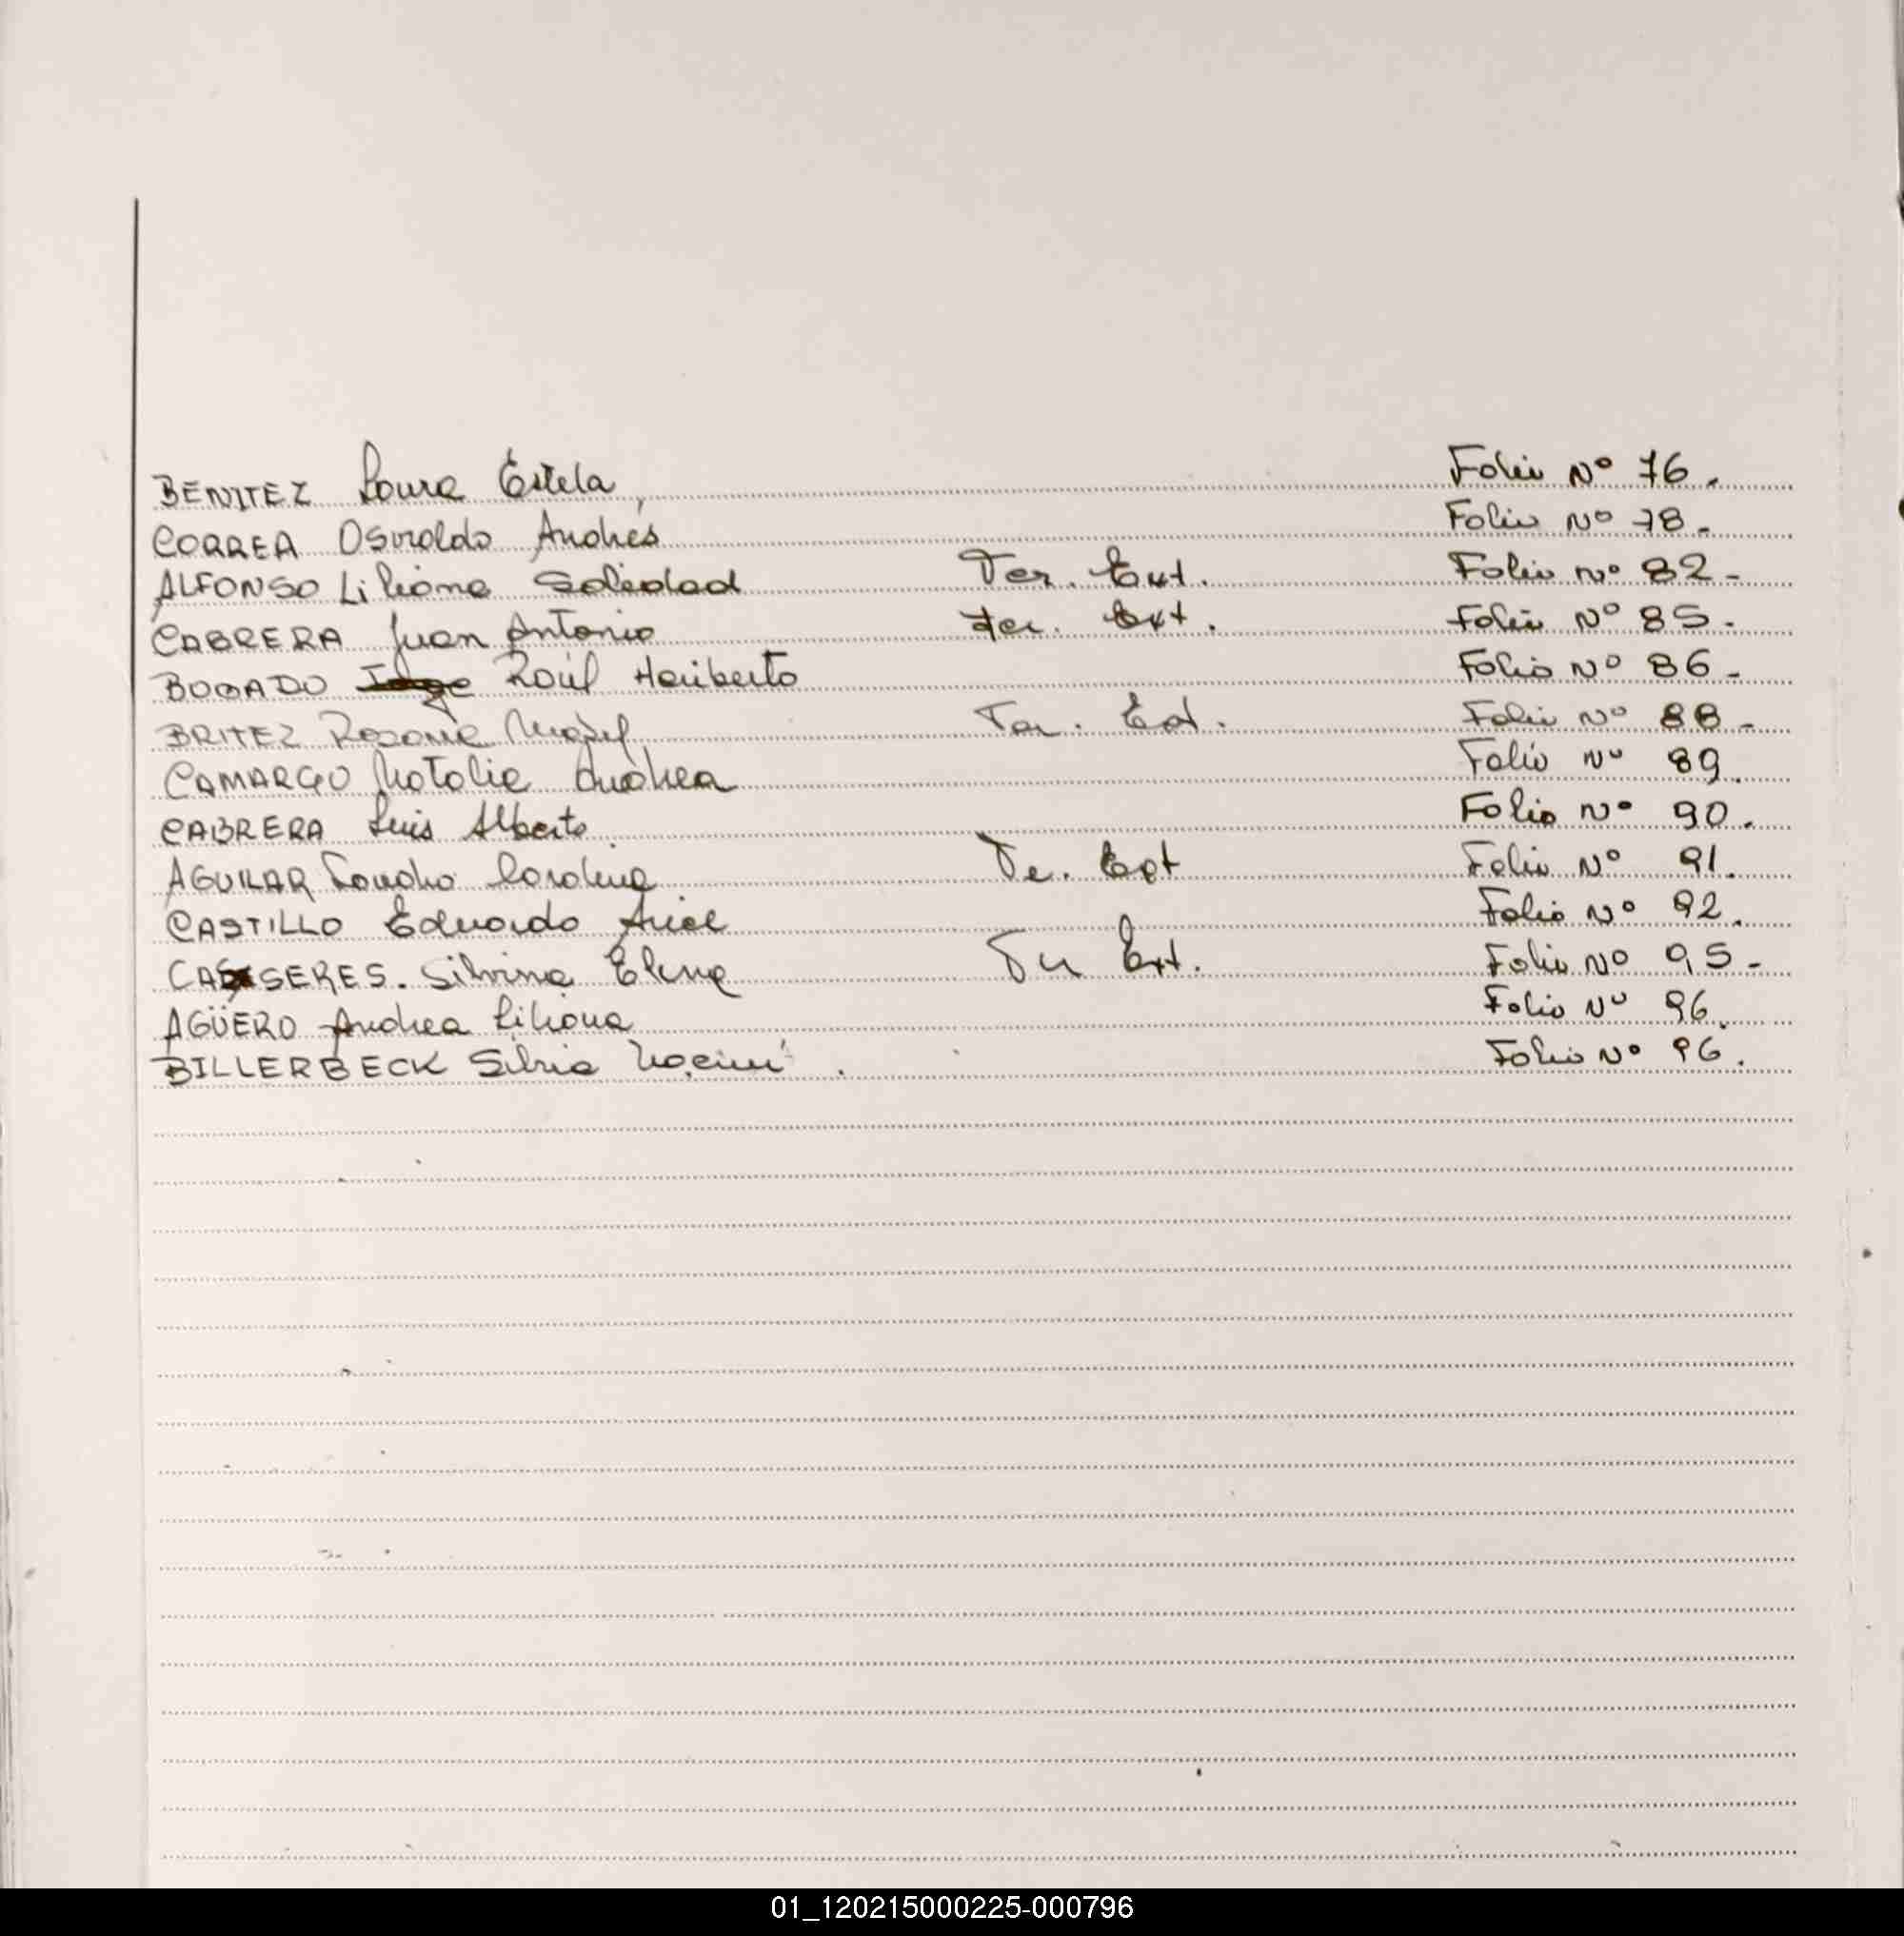 BENITEZ Laura Estela, Folio Nº 76.
CORREA Osvaldo Andrés Folio Nº 78.
ALFONSO Liliana Soledad Ter. Ext. Folio Nº 82-
CABRERA Juan Antonio Ter. Ext. Folio Nº 85-
BOGADO Jorge Raúl Heriberto Folio Nº 86-
BRITEZ Rosana Ter. Ext. Folio Nº 88-
CAMARGO Natalia Andrea Folio Nº 89.
CABRERA Luis Alberto Folio Nº 90.
AGUILAR Carolina Te. Ext Folio Nº 91.
CASTILLO Eduardo Ariel Folio Nº 92.
CASSERES. Silvina Elena Ter Ext. Folio Nº 95-
AGÜERO Andrea Liliana Folio Nº 96.
BILLERBECK Silvia Noemí. Folio Nº 96.
01_120215000225-000796